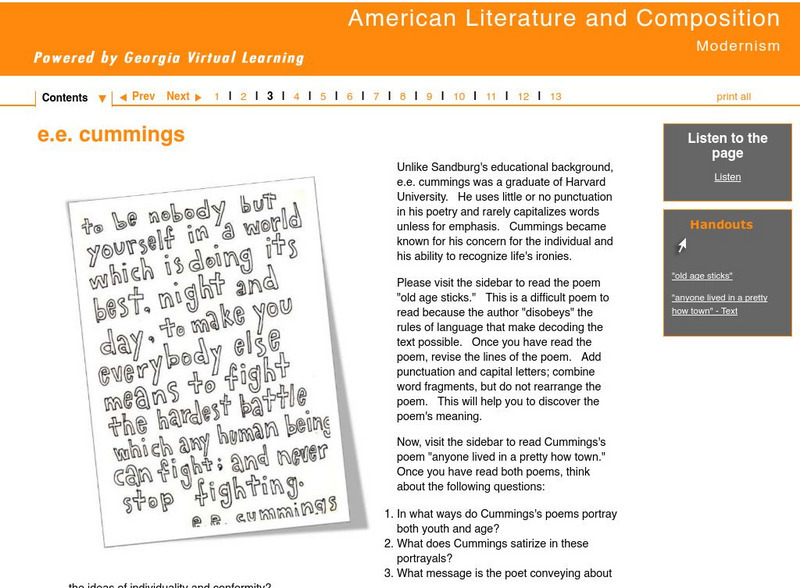 American Literature and Composition
Modernism
Powered by Georgia Virtual Learning
Contents ▼ ◀ Prev Next ▶ 1 | 2 | 3 | 4 | 5 | 6 | 7 | 8 | 9 | 10 | 11 | 12 | 13 print all
e.e. cummings
to be nobody but
yourself in a world
which is doing its
best, night and
day, to make you
everybody else
means to fight
the hardest battle
which any human being
can fight; and never
stop fighting.
e.e. cummings
Unlike Sandburg's educational background,
e.e. cummings was a graduate of Harvard
University. He uses little or no punctuation
in his poetry and rarely capitalizes words
unless for emphasis. Cummings became
known for his concern for the individual and
his ability to recognize life's ironies.
Please visit the sidebar to read the poem
"old age sticks." This is a difficult poem to
read because the author "disobeys" the
rules of language that make decoding the
text possible. Once you have read the
poem, revise the lines of the poem. Add
punctuation and capital letters; combine
word fragments, but do not rearrange the
poem. This will help you to discover the
poem's meaning.
Now, visit the sidebar to read Cummings's
poem "anyone lived in a pretty how town."
Once you have read both poems, think
about the following questions:
1. In what ways do Cummings's poems portray
both youth and age?
2. What does Cummings satirize in these
portrayals?
3. What message is the poet conveying about
the ideas of individuality and conformity?
Listen to the
page
Listen
Handouts
"old age sticks"
"anyone lived in a pretty
how town" - Text